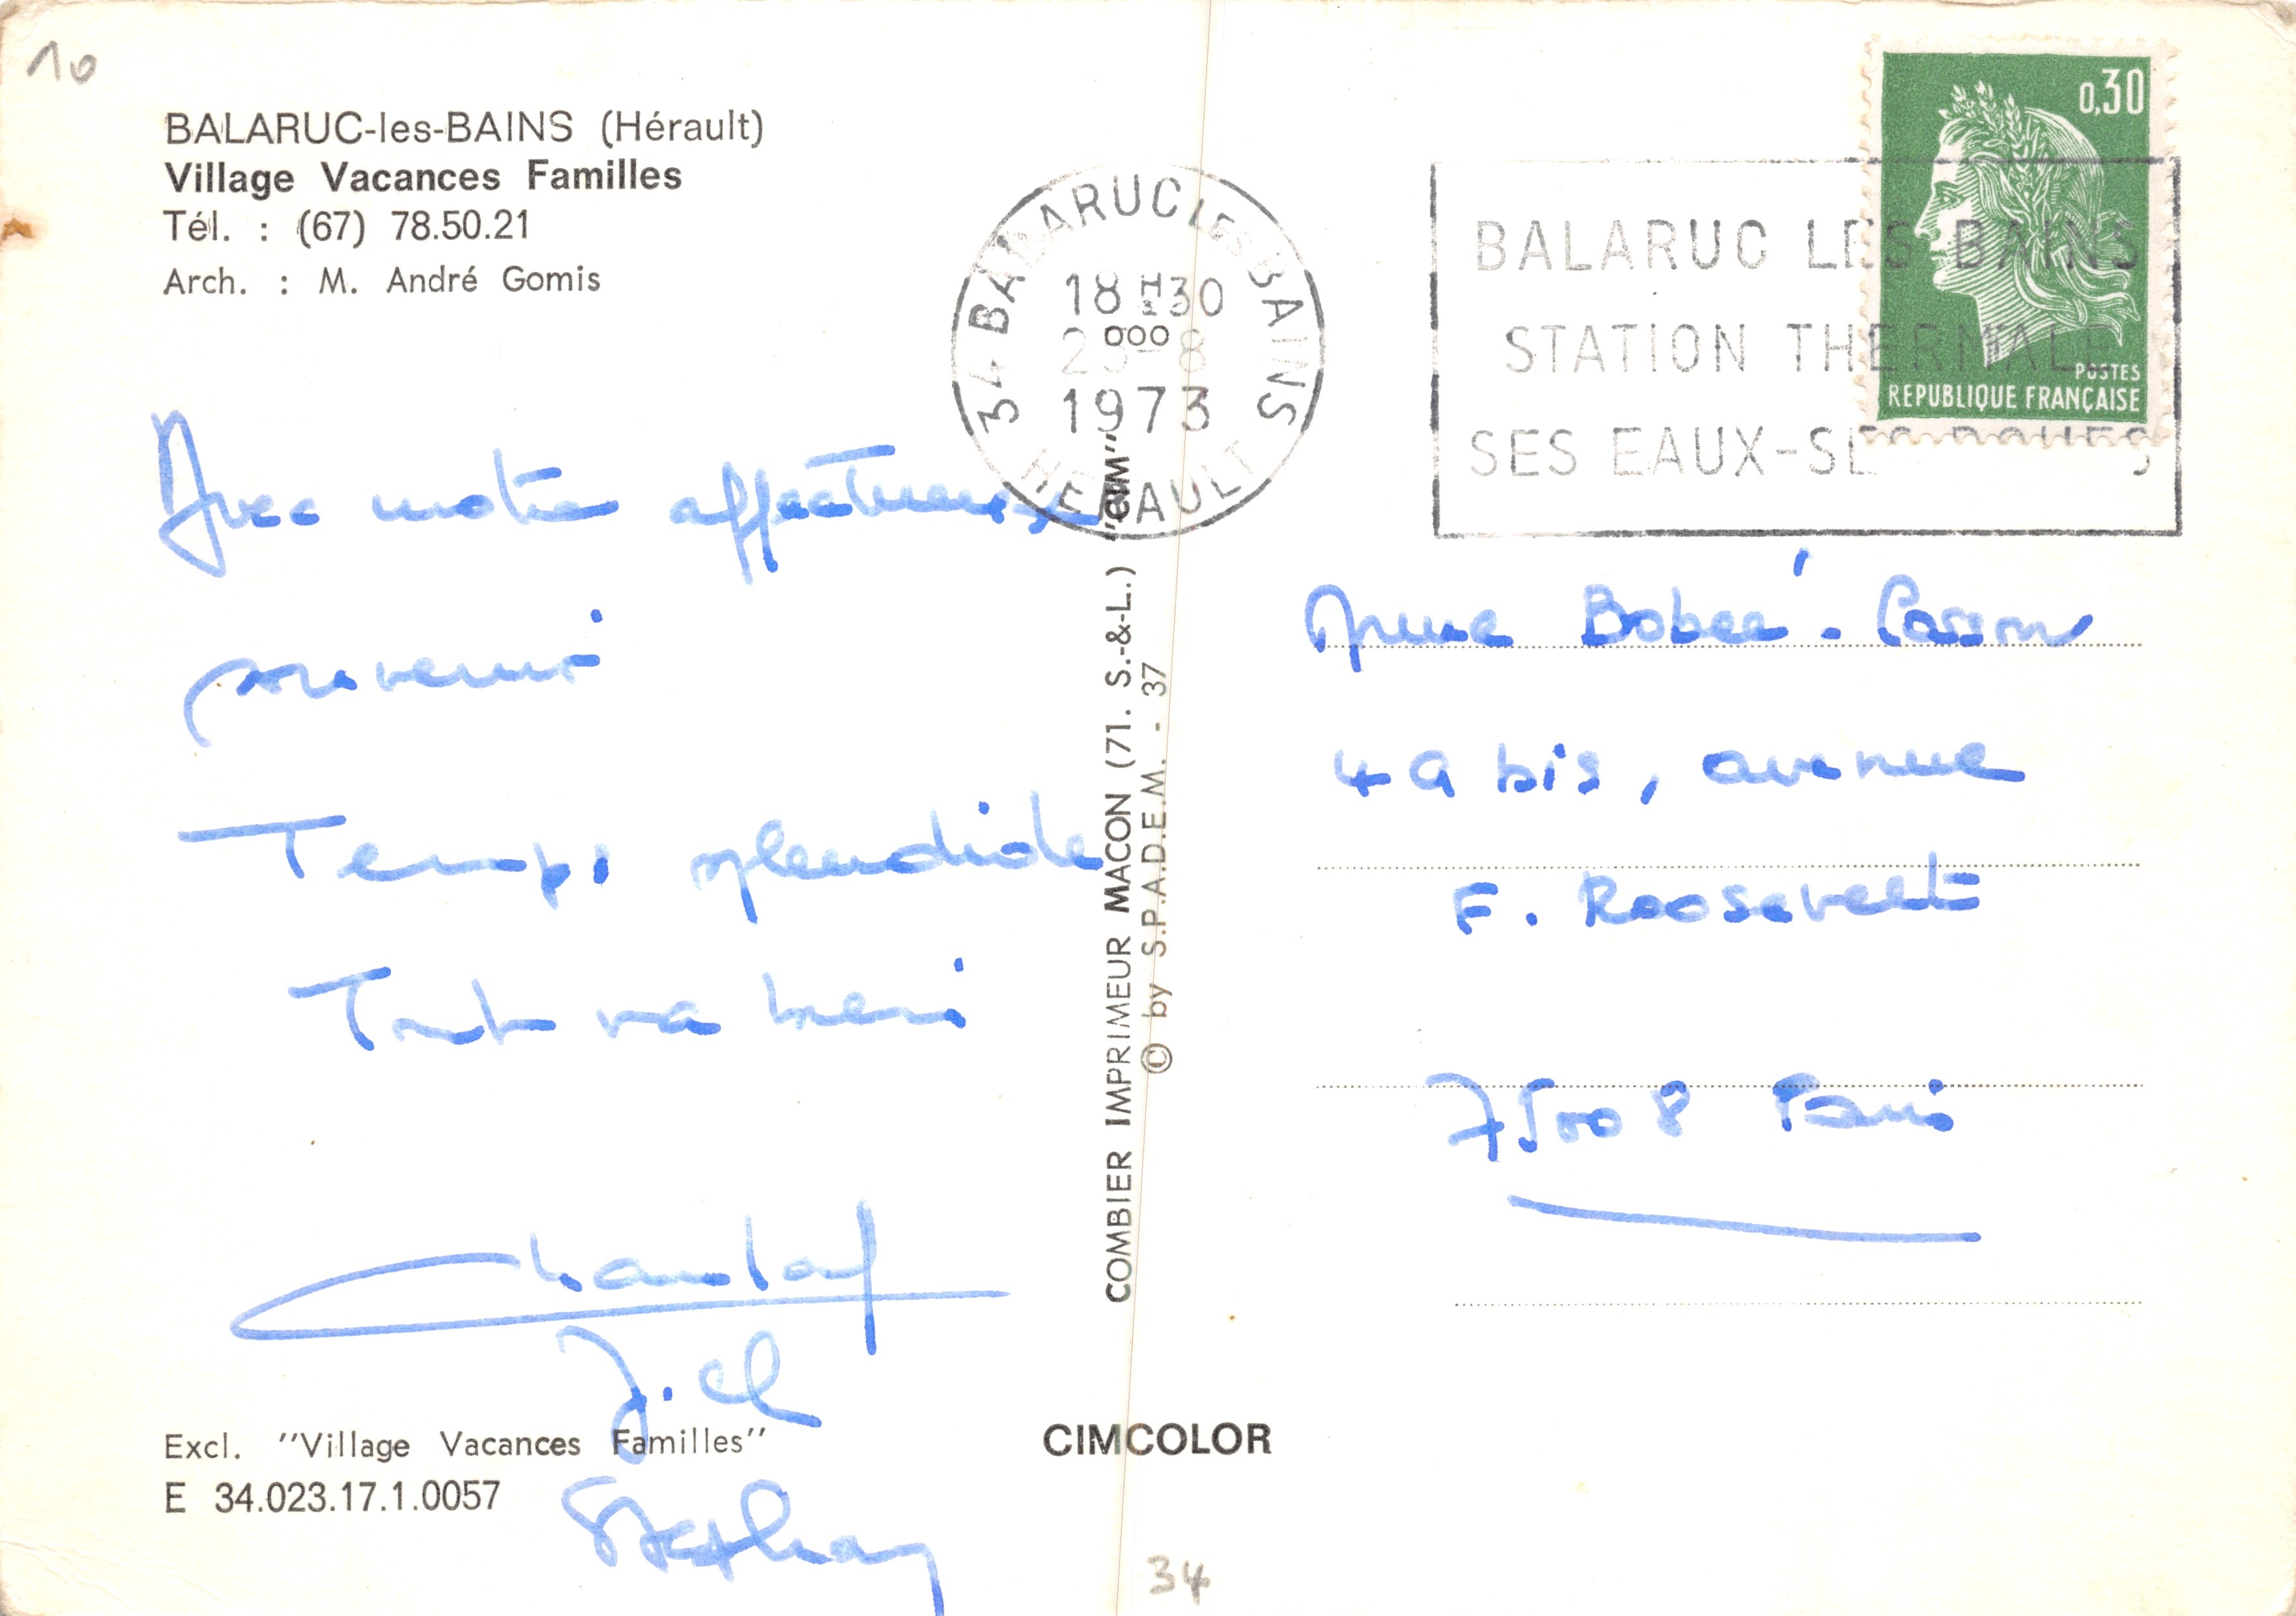 10
BALARUC-les-BAINS (Hérault)
Village Vacances Familles
Tél. : (67) 78.50.21
Arch. : M. André Gomis
Avec notre affectueux
souvenir
Temps splendide
Tout va bien
Chantal
J. Cl
Stephan
Excl. "Village Vacances Familles"
E 34.023.17.1.0057
COMBIER IMPRIMEUR MACON (71. S.-&-L.) "CIM"
© by S.P.A.D.E.M. - 37
CIMCOLOR
34
34 BALARUC LES BAINS
18H30
-8
1973
HERAULT
BALARUC LES BAINS
STATION THERMALE
SES EAUX-SES BOUES
0,30
POSTES
REPUBLIQUE FRANÇAISE
Mme Bobeé
49 bis, avenue
F. Roosevelt
75008 Paris